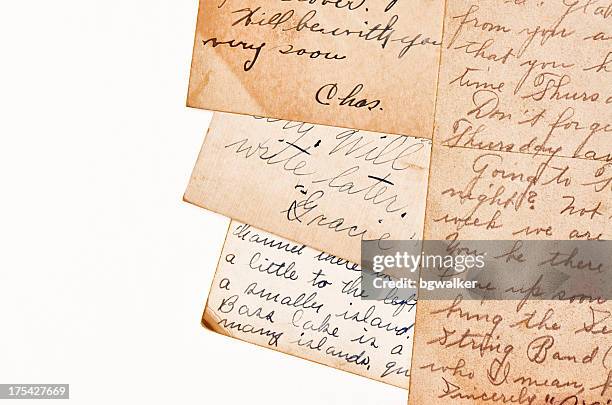 will be with you
very soon
Chas.
Will
write later.
"Gracie"
a little to the left
a smaller island.
Bass Lake is a
many islands,
from you a
that you h
time Thurs
Don't forge
Thursday
Going to
night? Not
week we are
You be there
up soon
hung the
String Band
who I mean,
Sincerely
iStock
Credit: bgwalker
175427669